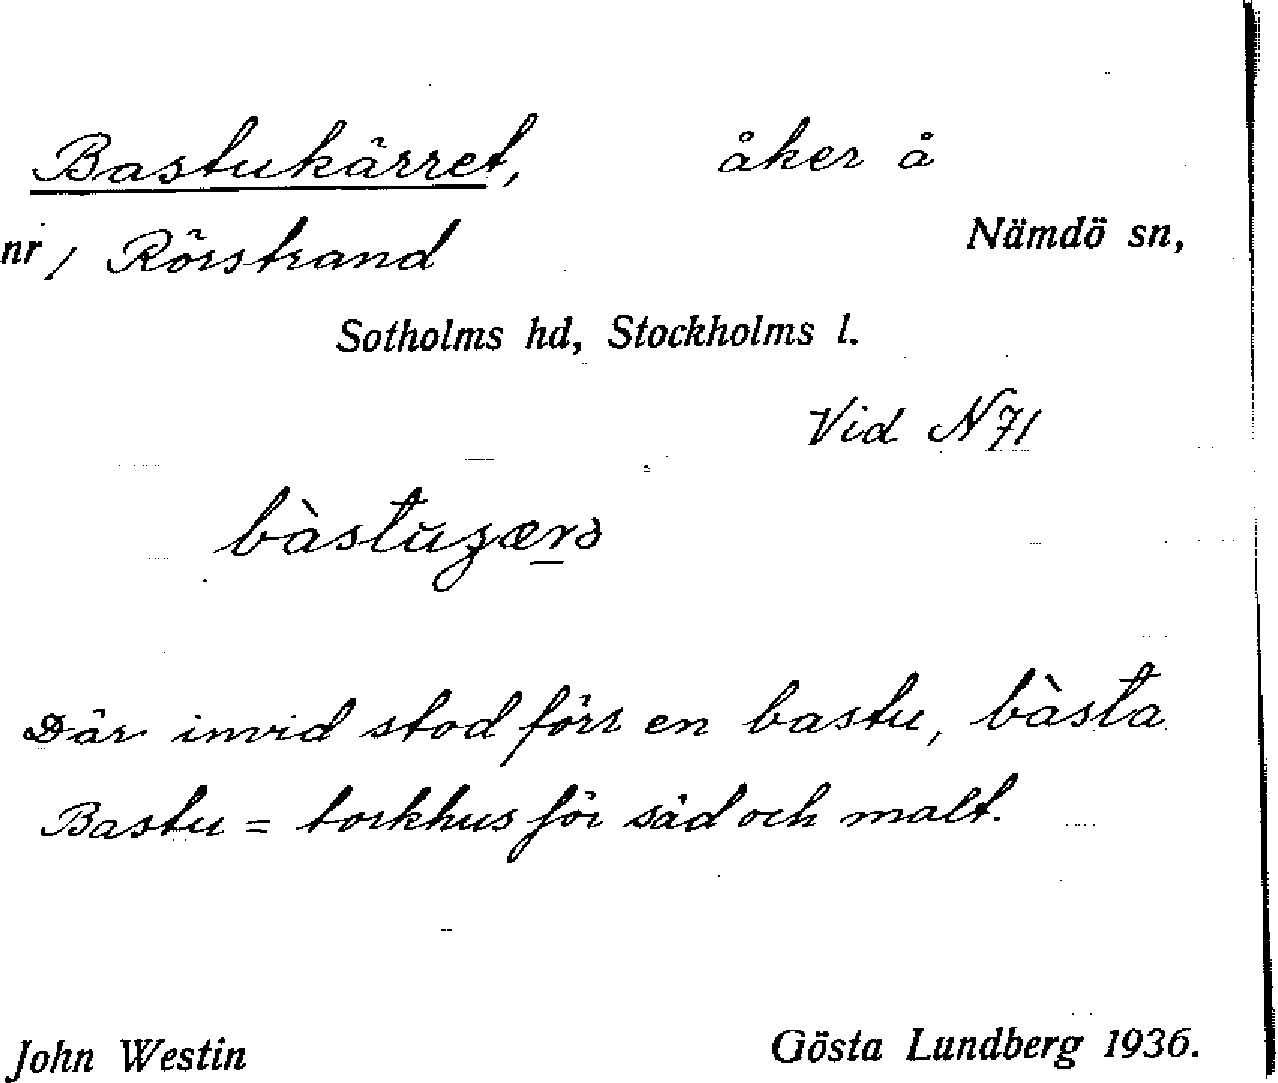 Bastukärret, åker å
nr 1 Rörstrand Nämdö sn,
Sotholms hd, Stockholms l.
Vid N 71
bàstuʒærə
Där invid stod förr en bastu, bàsta
Bastu = torkhus för säd och malt.
John Westin Gösta Lundberg 1936.